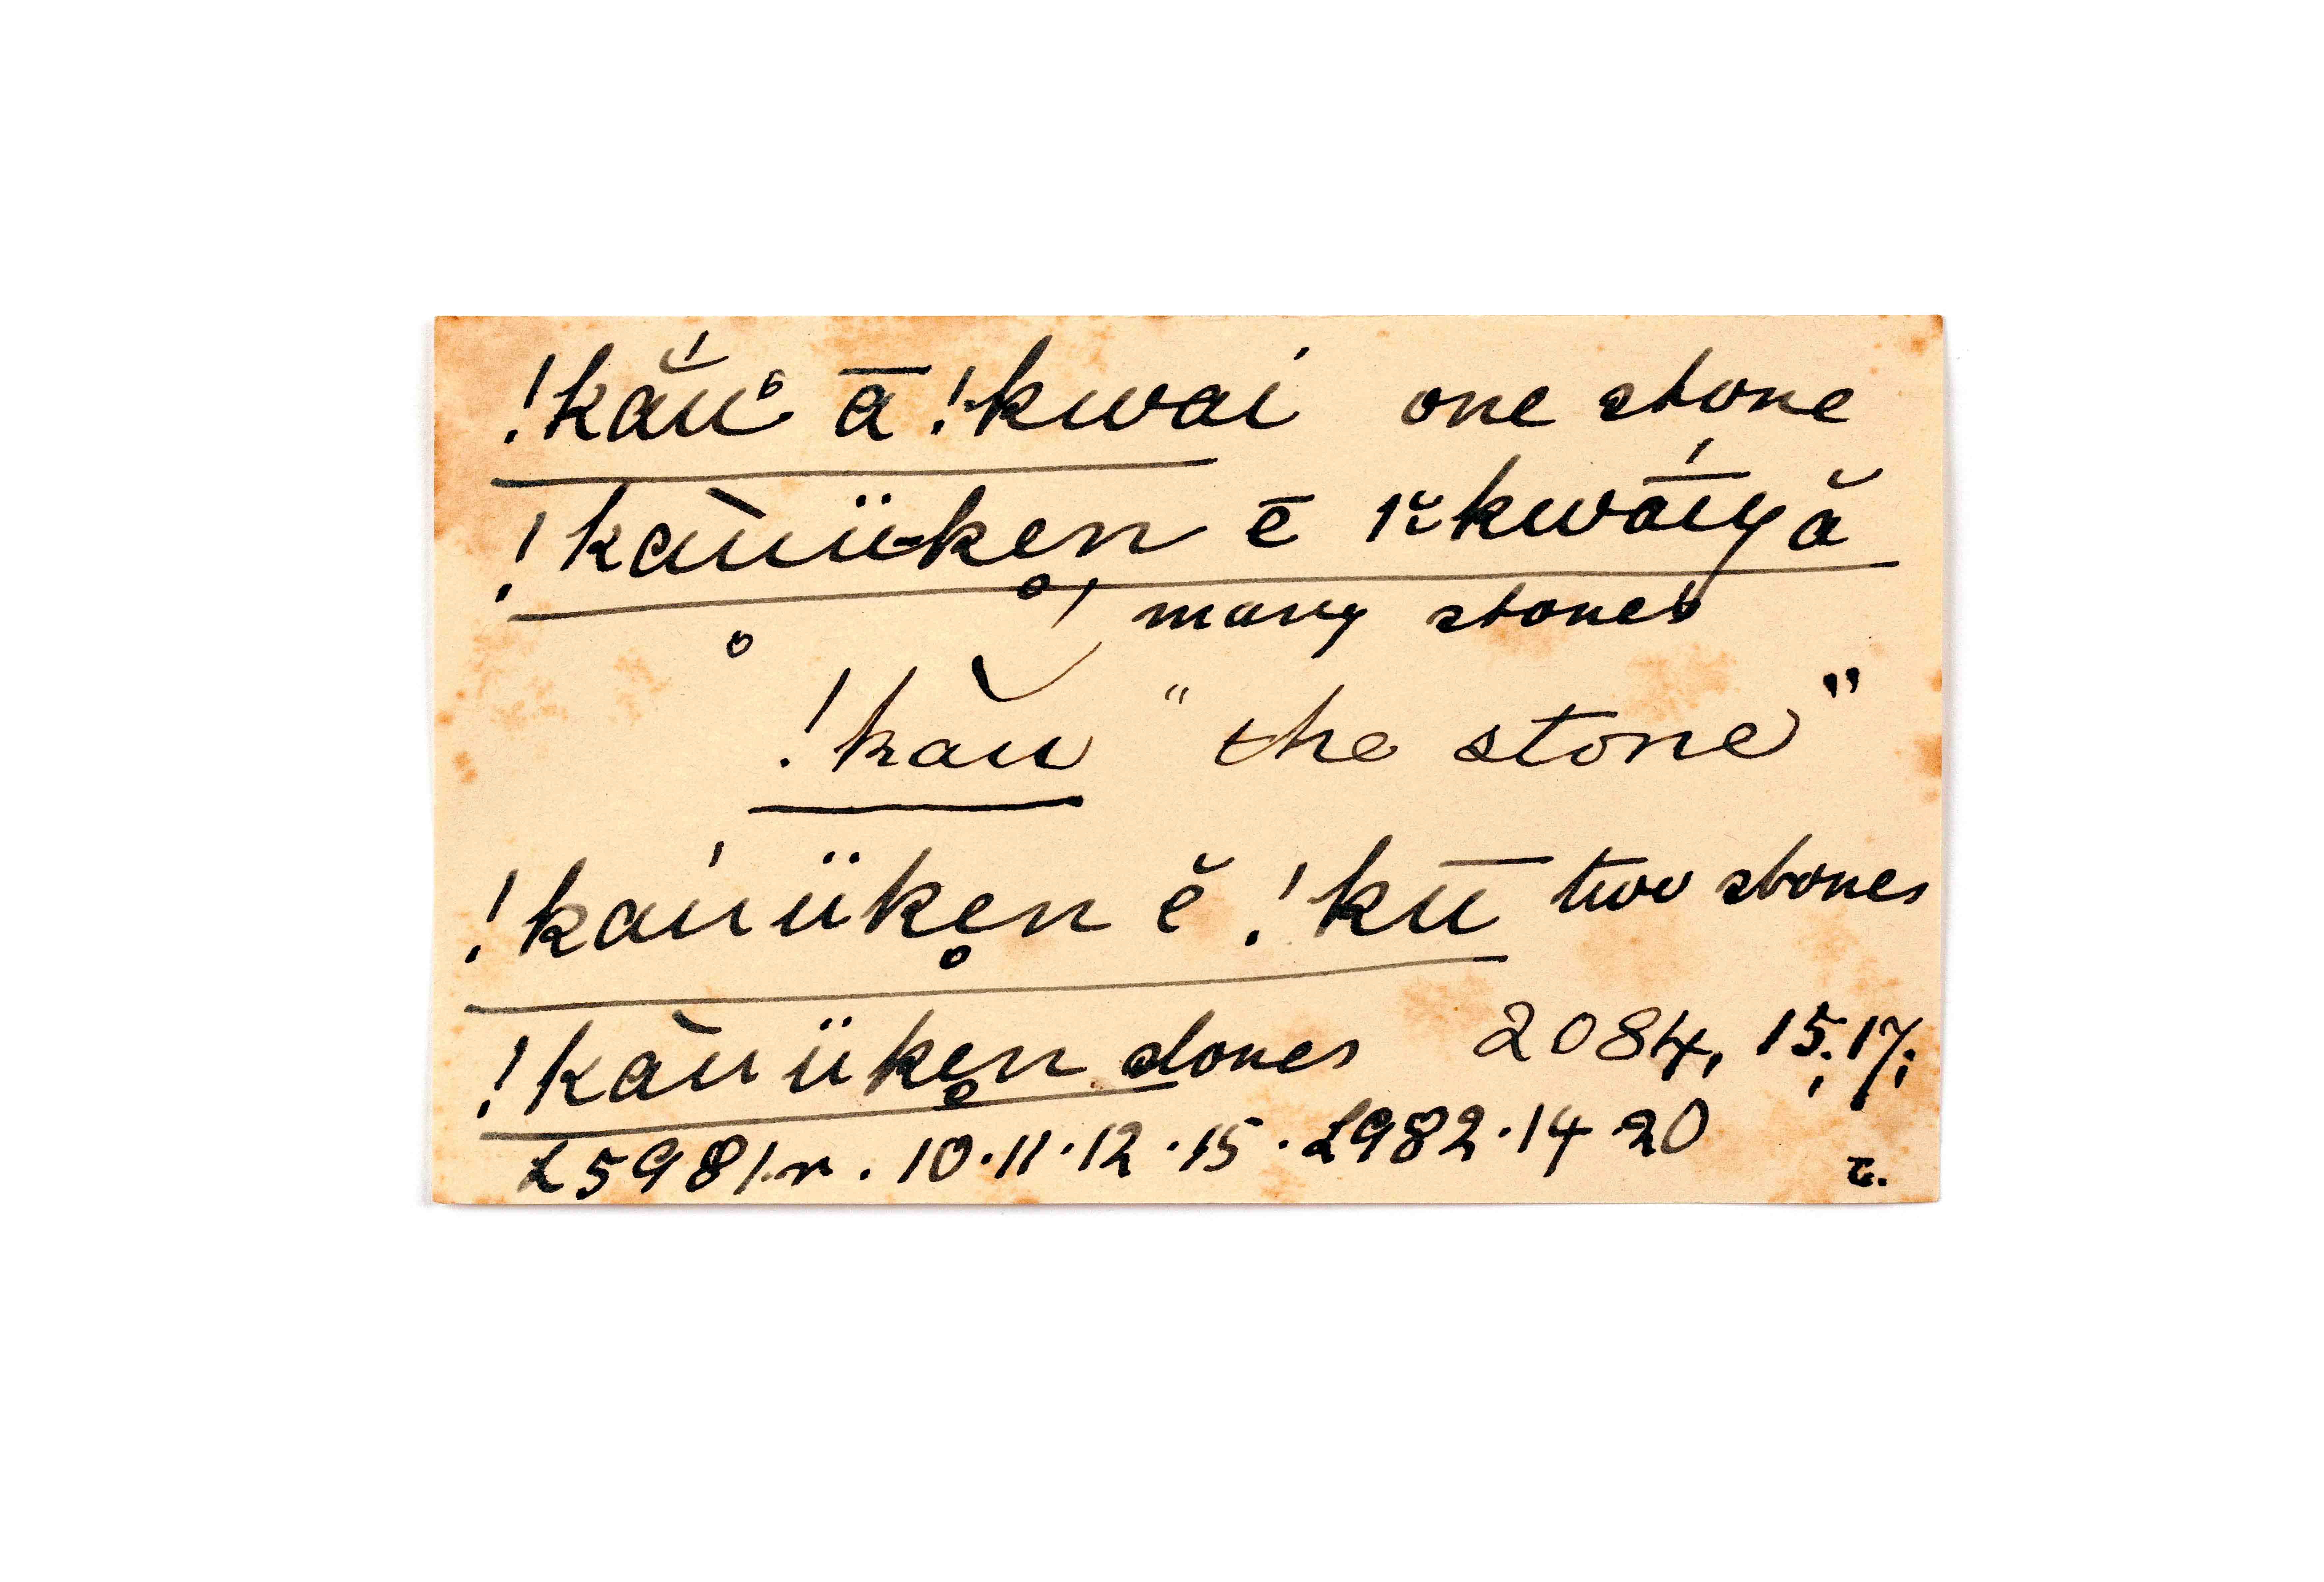 !kắu̐ ā !kwai one stone
!kàuü-ken̥ ē |ʿkwā́iyă
many stones
!kằu "the stone"
!káuüke̥n ĕ !kū two stones
!kàuüke̥n stones 2084, 15; 17;
L5981.r. 10.11.12.15. L982.14 20